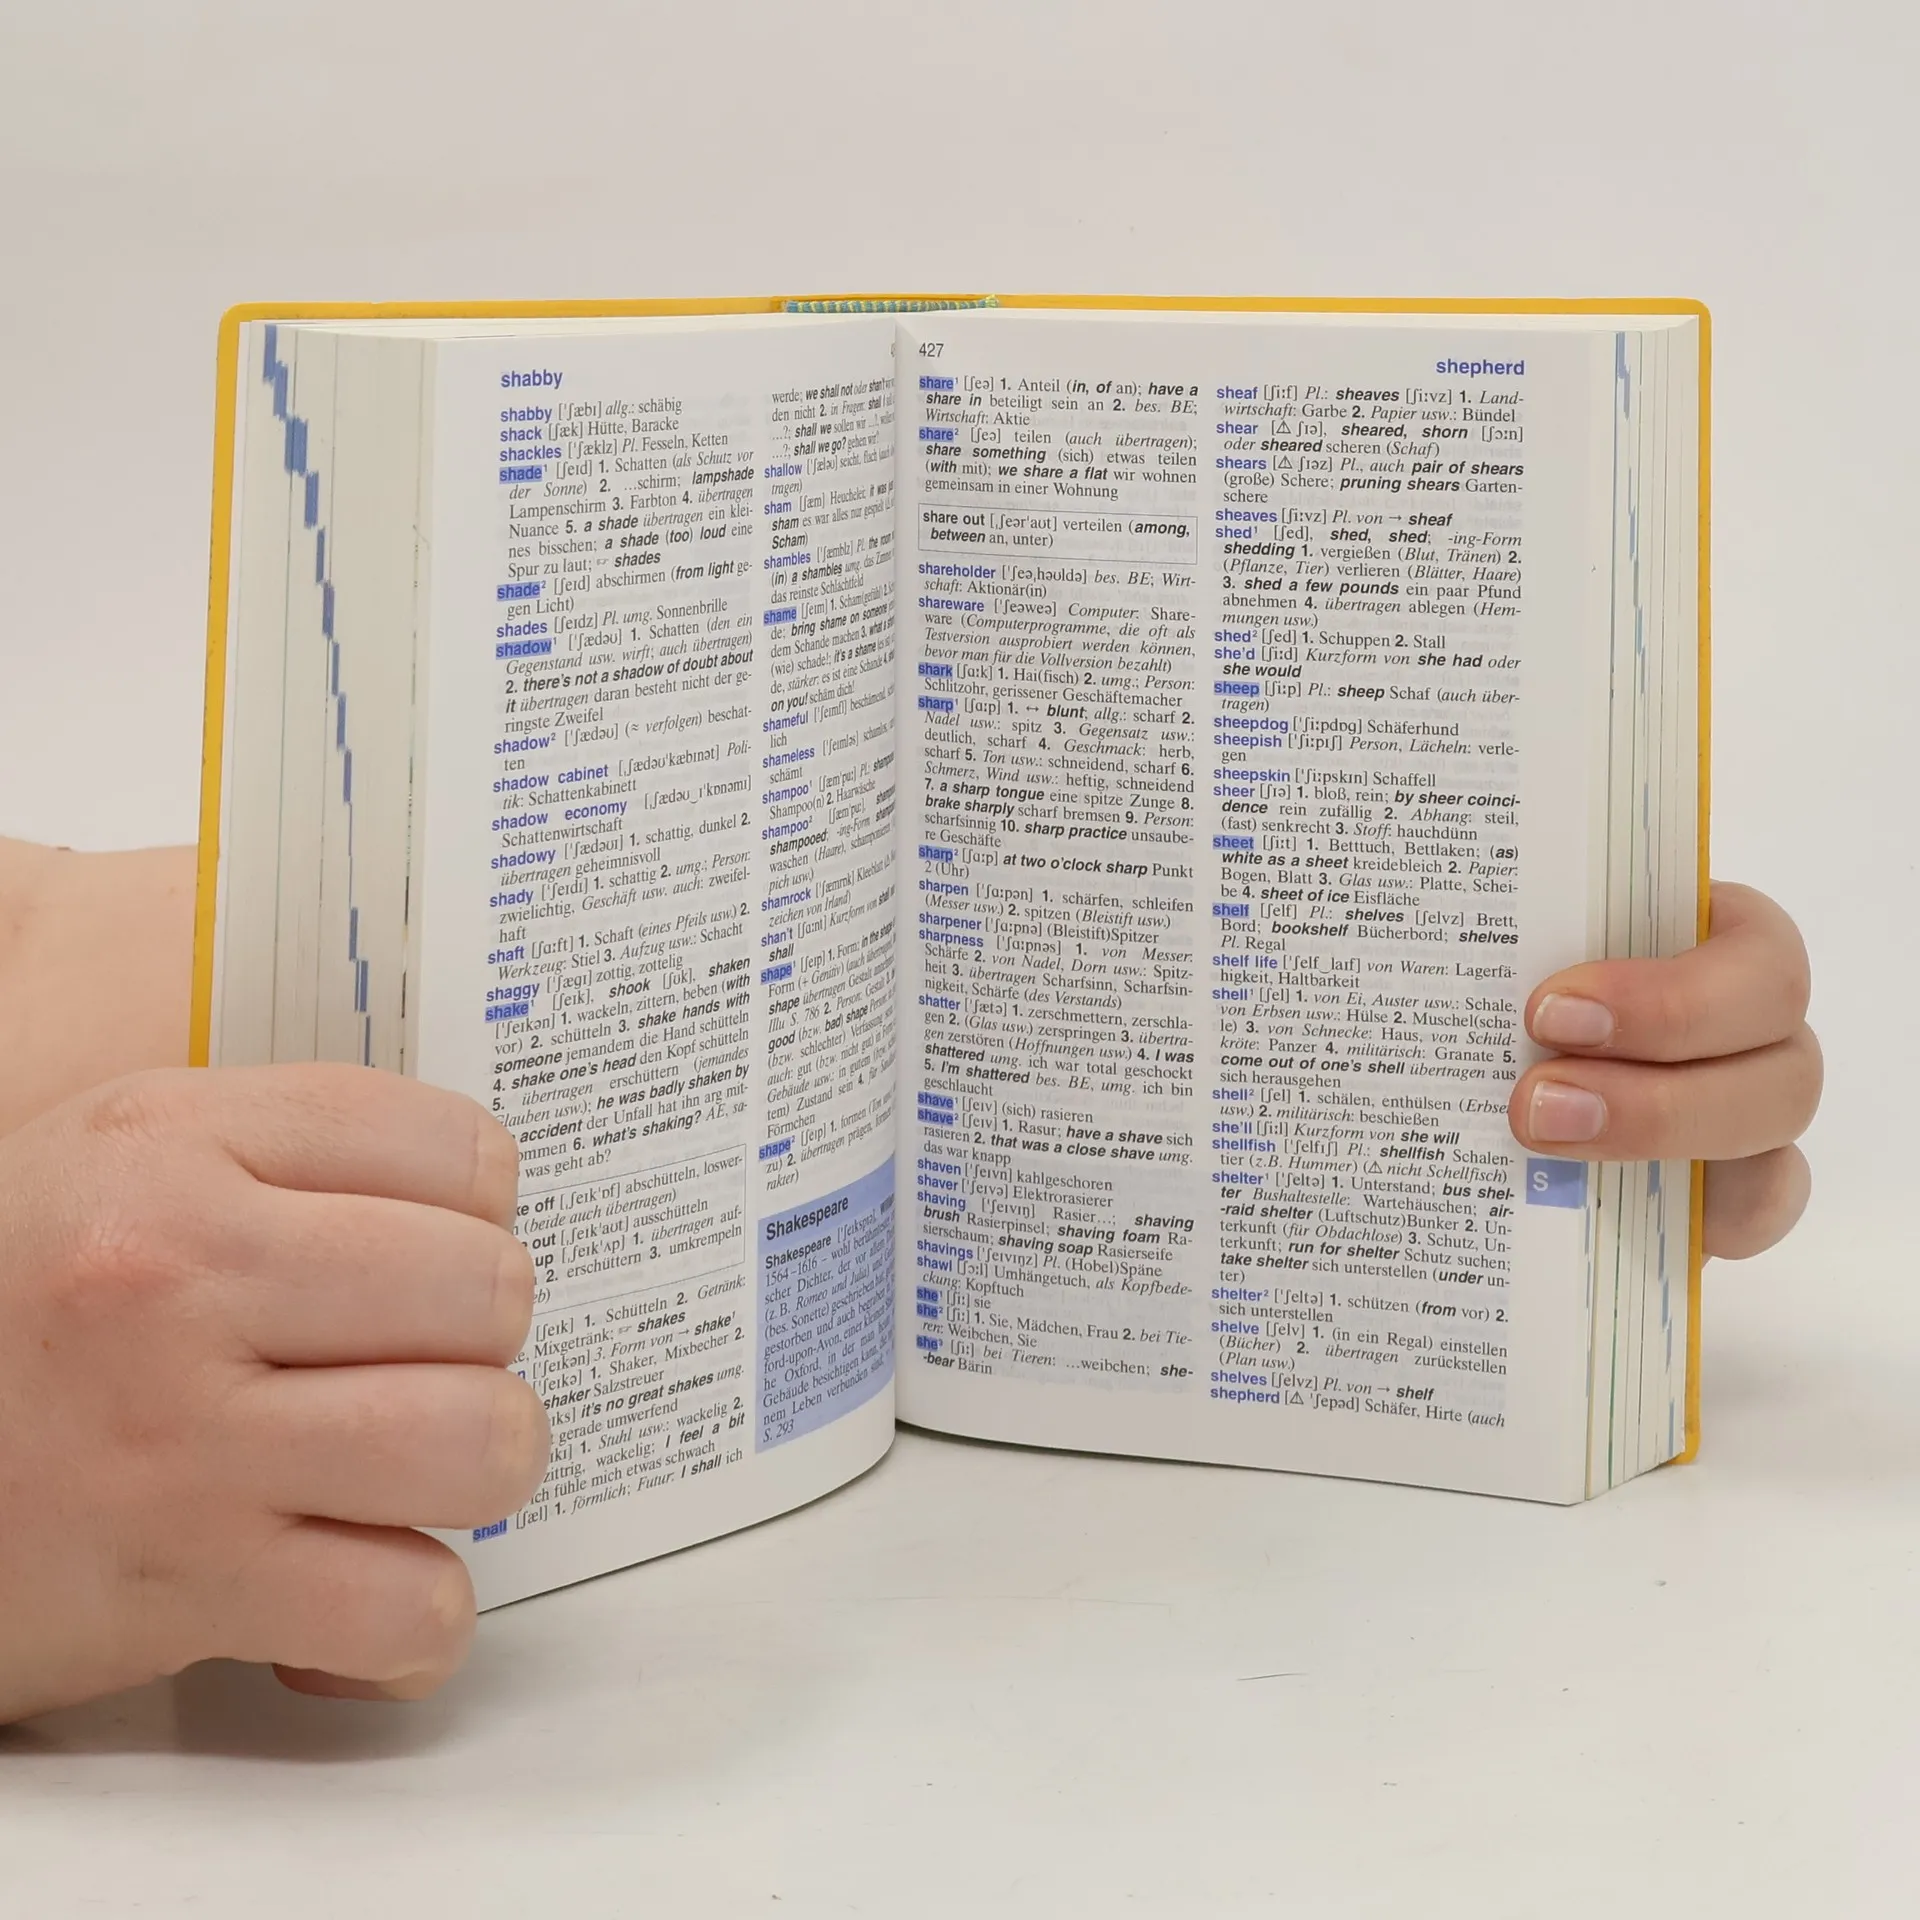 shabby
shabby [ˈʃæbɪ] allg.: schäbig
shack [ʃæk] Hütte, Baracke
shackles [ˈʃæklz] Pl. Fesseln, Ketten
shade¹ [ʃeɪd] 1. Schatten (als Schutz vor
der Sonne) 2. ...schirm; lampshade
Lampenschirm 3. Farbton 4. übertragen
Nuance 5. a shade übertragen ein klei-
nes bisschen; a shade (too) loud eine
Spur zu laut; ☞ shades
shade² [ʃeɪd] abschirmen (from light ge-
gen Licht)
shades [ʃeɪdz] Pl. umg. Sonnenbrille
shadow¹ [ˈʃædəʊ] 1. Schatten (den ein
Gegenstand usw. wirft; auch übertragen)
2. there's not a shadow of doubt about
it übertragen daran besteht nicht der ge-
ringste Zweifel
shadow² [ˈʃædəʊ] (≈ verfolgen) beschat-
ten
shadow cabinet [ˌʃædəʊˈkæbɪnət] Poli-
tik: Schattenkabinett
shadow economy [ˌʃædəʊ‿ɪˈkɒnəmɪ]
Schattenwirtschaft
shadowy [ˈʃædəʊɪ] 1. schattig, dunkel 2.
übertragen geheimnisvoll
shady [ˈʃeɪdɪ] 1. schattig 2. umg.; Person:
zwielichtig, Geschäft usw. auch: zweifel-
haft
shaft [ʃɑːft] 1. Schaft (eines Pfeils usw.) 2.
Werkzeug: Stiel 3. Aufzug usw.: Schacht
shaggy [ˈʃægɪ] zottig, zottelig
shake¹ [ʃeɪk], shook [ʃʊk], shaken
[ˈʃeɪkən] 1. wackeln, zittern, beben (with
vor) 2. schütteln 3. shake hands with
someone jemandem die Hand schütteln
4. shake one's head den Kopf schütteln
5. übertragen erschüttern (jemandes
Glauben usw.); he was badly shaken by
accident der Unfall hat ihn arg mit-
ommen 6. what's shaking? AE, sa-
was geht ab?
ke off [ˌʃeɪkˈɒf] abschütteln, loswer-
(beide auch übertragen)
out [ˌʃeɪkˈaʊt] ausschütteln
up [ˌʃeɪkˈʌp] 1. übertragen auf-
2. erschüttern 3. umkrempeln
eb)
[ʃeɪk] 1. Schütteln 2. Getränk:
Mixgetränk; ☞ shakes
[ˈʃeɪkən] 3. Form von → shake¹
[ˈʃeɪkə] 1. Shaker, Mixbecher 2.
shaker Salzstreuer
it's no great shakes umg.
gerade umwerfend
1. Stuhl usw.: wackelig 2.
zittrig, wackelig; I feel a bit
ich fühle mich etwas schwach
shall [ʃæl] 1. förmlich; Futur: I shall ich
werde; we shall not oder shan't
den nicht 2. in Fragen: shall I
...?; shall we sollen wir ...?
...?; shall we go? gehen wir?
shallow [ˈʃæləʊ] seicht, flach
tragen)
sham [ʃæm] Heuchelei; it was
sham es war alles nur gespielt
Scham)
shambles [ˈʃæmblz] Pl. the room
(in) a shambles umg. das Zimmer
das reinste Schlachtfeld
shame [ʃeɪm] 1. Scham(gefühl) 2.
de; bring shame on someone
dem Schande machen 3. what a
(wie) schade!; it's a shame
de, stärker: es ist eine Schande 4.
on you! schäm dich!
shameful [ˈʃeɪmfl] beschämend,
lich
shameless [ˈʃeɪmləs] schamlos,
schämt
shampoo¹ [ʃæmˈpuː] Pl.:
Shampoo(n) 2. Haarwäsche
shampoo² [ʃæmˈpuː],
shampooed; -ing-Form
waschen (Haare), schamponieren
pich usw.)
shamrock [ˈʃæmrɒk] Kleeblatt
zeichen von Irland)
shan't [ʃɑːnt] Kurzform von
shall
shape¹ [ʃeɪp] 1. Form; in the shape
Form (+ Genitiv) (auch übertragen)
shape übertragen Gestalt annehmen
Illu S. 786 2. Person: Gestalt
good (bzw. bad) shape Person
(bzw. schlechter) Verfassung
auch: gut (bzw. nicht gut) in Form
Gebäude usw.: in gutem
tem) Zustand sein 4. für
Förmchen
shape² [ʃeɪp] 1. formen
zu) 2. übertragen prägen, formen
rakter)
Shakespeare
Shakespeare
1564–1616 – wohl berühmtester
scher Dichter, der vor allem
(z. B. Romeo und Julia) und
(bes. Sonette) geschrieben hat.
gestorben und auch begraben
ford-upon-Avon, einer kleinen
he Oxford, in der man heute
Gebäude besichtigen kann, die
nem Leben verbunden sind.
S. 293
427
shepherd
share¹ [ʃeə] 1. Anteil (in, of an); have a
share in beteiligt sein an 2. bes. BE;
Wirtschaft: Aktie
share² [ʃeə] teilen (auch übertragen);
share something (sich) etwas teilen
(with mit); we share a flat wir wohnen
gemeinsam in einer Wohnung
share out [ˌʃeərˈaʊt] verteilen (among,
between an, unter)
shareholder [ˈʃeəˌhəʊldə] bes. BE; Wirt-
schaft: Aktionär(in)
shareware [ˈʃeəweə] Computer: Share-
ware (Computerprogramme, die oft als
Testversion ausprobiert werden können,
bevor man für die Vollversion bezahlt)
shark [ʃɑːk] 1. Hai(fisch) 2. umg.; Person:
Schlitzohr, gerissener Geschäftemacher
sharp¹ [ʃɑːp] 1. ↔ blunt; allg.: scharf 2.
Nadel usw.: spitz 3. Gegensatz usw.:
deutlich, scharf 4. Geschmack: herb,
scharf 5. Ton usw.: schneidend, scharf 6.
Schmerz, Wind usw.: heftig, schneidend
7. a sharp tongue eine spitze Zunge 8.
brake sharply scharf bremsen 9. Person:
scharfsinnig 10. sharp practice unsaube-
re Geschäfte
sharp² [ʃɑːp] at two o'clock sharp Punkt
2 (Uhr)
sharpen [ˈʃɑːpən] 1. schärfen, schleifen
(Messer usw.) 2. spitzen (Bleistift usw.)
sharpener [ˈʃɑːpnə] (Bleistift)Spitzer
sharpness [ˈʃɑːpnəs] 1. von Messer:
Schärfe 2. von Nadel, Dorn usw.: Spitz-
heit 3. übertragen Scharfsinn, Scharfsin-
nigkeit, Schärfe (des Verstands)
shatter [ˈʃætə] 1. zerschmettern, zerschla-
gen 2. (Glas usw.) zerspringen 3. übertra-
gen zerstören (Hoffnungen usw.) 4. I was
shattered umg. ich war total geschockt
5. I'm shattered bes. BE, umg. ich bin
geschlaucht
shave¹ [ʃeɪv] (sich) rasieren
shave² [ʃeɪv] 1. Rasur; have a shave sich
rasieren 2. that was a close shave umg.
das war knapp
shaven [ˈʃeɪvn] kahlgeschoren
shaver [ˈʃeɪvə] Elektrorasierer
shaving [ˈʃeɪvɪŋ] Rasier...; shaving
brush Rasierpinsel; shaving foam Ra-
sierschaum; shaving soap Rasierseife
shavings [ˈʃeɪvɪŋz] Pl. (Hobel)Späne
shawl [ʃɔːl] Umhängetuch, als Kopfbede-
ckung: Kopftuch
she¹ [ʃiː] sie
she² [ʃiː] 1. Sie, Mädchen, Frau 2. bei Tie-
ren: Weibchen, Sie
she³ [ʃiː] bei Tieren: ...weibchen; she-
-bear Bärin
sheaf [ʃiːf] Pl.: sheaves [ʃiːvz] 1. Land-
wirtschaft: Garbe 2. Papier usw.: Bündel
shear [⚠ ʃɪə], sheared, shorn [ʃɔːn]
oder sheared scheren (Schaf)
shears [⚠ ʃɪəz] Pl., auch pair of shears
(große) Schere; pruning shears Garten-
schere
sheaves [ʃiːvz] Pl. von → sheaf
shed¹ [ʃed], shed, shed; -ing-Form
shedding 1. vergießen (Blut, Tränen) 2.
(Pflanze, Tier) verlieren (Blätter, Haare)
3. shed a few pounds ein paar Pfund
abnehmen 4. übertragen ablegen (Hem-
mungen usw.)
shed² [ʃed] 1. Schuppen 2. Stall
she'd [ʃiːd] Kurzform von she had oder
she would
sheep [ʃiːp] Pl.: sheep Schaf (auch über-
tragen)
sheepdog [ˈʃiːpdɒg] Schäferhund
sheepish [ˈʃiːpɪʃ] Person, Lächeln: verle-
gen
sheepskin [ˈʃiːpskɪn] Schaffell
sheer [ʃɪə] 1. bloß, rein; by sheer coinci-
dence rein zufällig 2. Abhang: steil,
(fast) senkrecht 3. Stoff: hauchdünn
sheet [ʃiːt] 1. Betttuch, Bettlaken; (as)
white as a sheet kreidebleich 2. Papier:
Bogen, Blatt 3. Glas usw.: Platte, Schei-
be 4. sheet of ice Eisfläche
shelf [ʃelf] Pl.: shelves [ʃelvz] Brett,
Bord; bookshelf Bücherbord; shelves
Pl. Regal
shelf life [ˈʃelf‿laɪf] von Waren: Lagerfä-
higkeit, Haltbarkeit
shell¹ [ʃel] 1. von Ei, Auster usw.: Schale,
von Erbsen usw.: Hülse 2. Muschel(scha-
le) 3. von Schnecke: Haus, von Schild-
kröte: Panzer 4. militärisch: Granate 5.
come out of one's shell übertragen aus
sich herausgehen
shell² [ʃel] 1. schälen, enthülsen (Erbsen
usw.) 2. militärisch: beschießen
she'll [ʃiːl] Kurzform von she will
shellfish [ˈʃelfɪʃ] Pl.: shellfish Schalen-
tier (z.B. Hummer) (⚠ nicht Schellfisch)
shelter¹ [ˈʃeltə] 1. Unterstand; bus shel-
ter Bushaltestelle: Wartehäuschen; air-
-raid shelter (Luftschutz)Bunker 2. Un-
terkunft (für Obdachlose) 3. Schutz, Un-
terkunft; run for shelter Schutz suchen;
take shelter sich unterstellen (under un-
ter)
shelter² [ˈʃeltə] 1. schützen (from vor) 2.
sich unterstellen
shelve [ʃelv] 1. (in ein Regal) einstellen
(Bücher) 2. übertragen zurückstellen
(Plan usw.)
shelves [ʃelvz] Pl. von → shelf
shepherd [⚠ ˈʃepəd] Schäfer, Hirte (auch
S